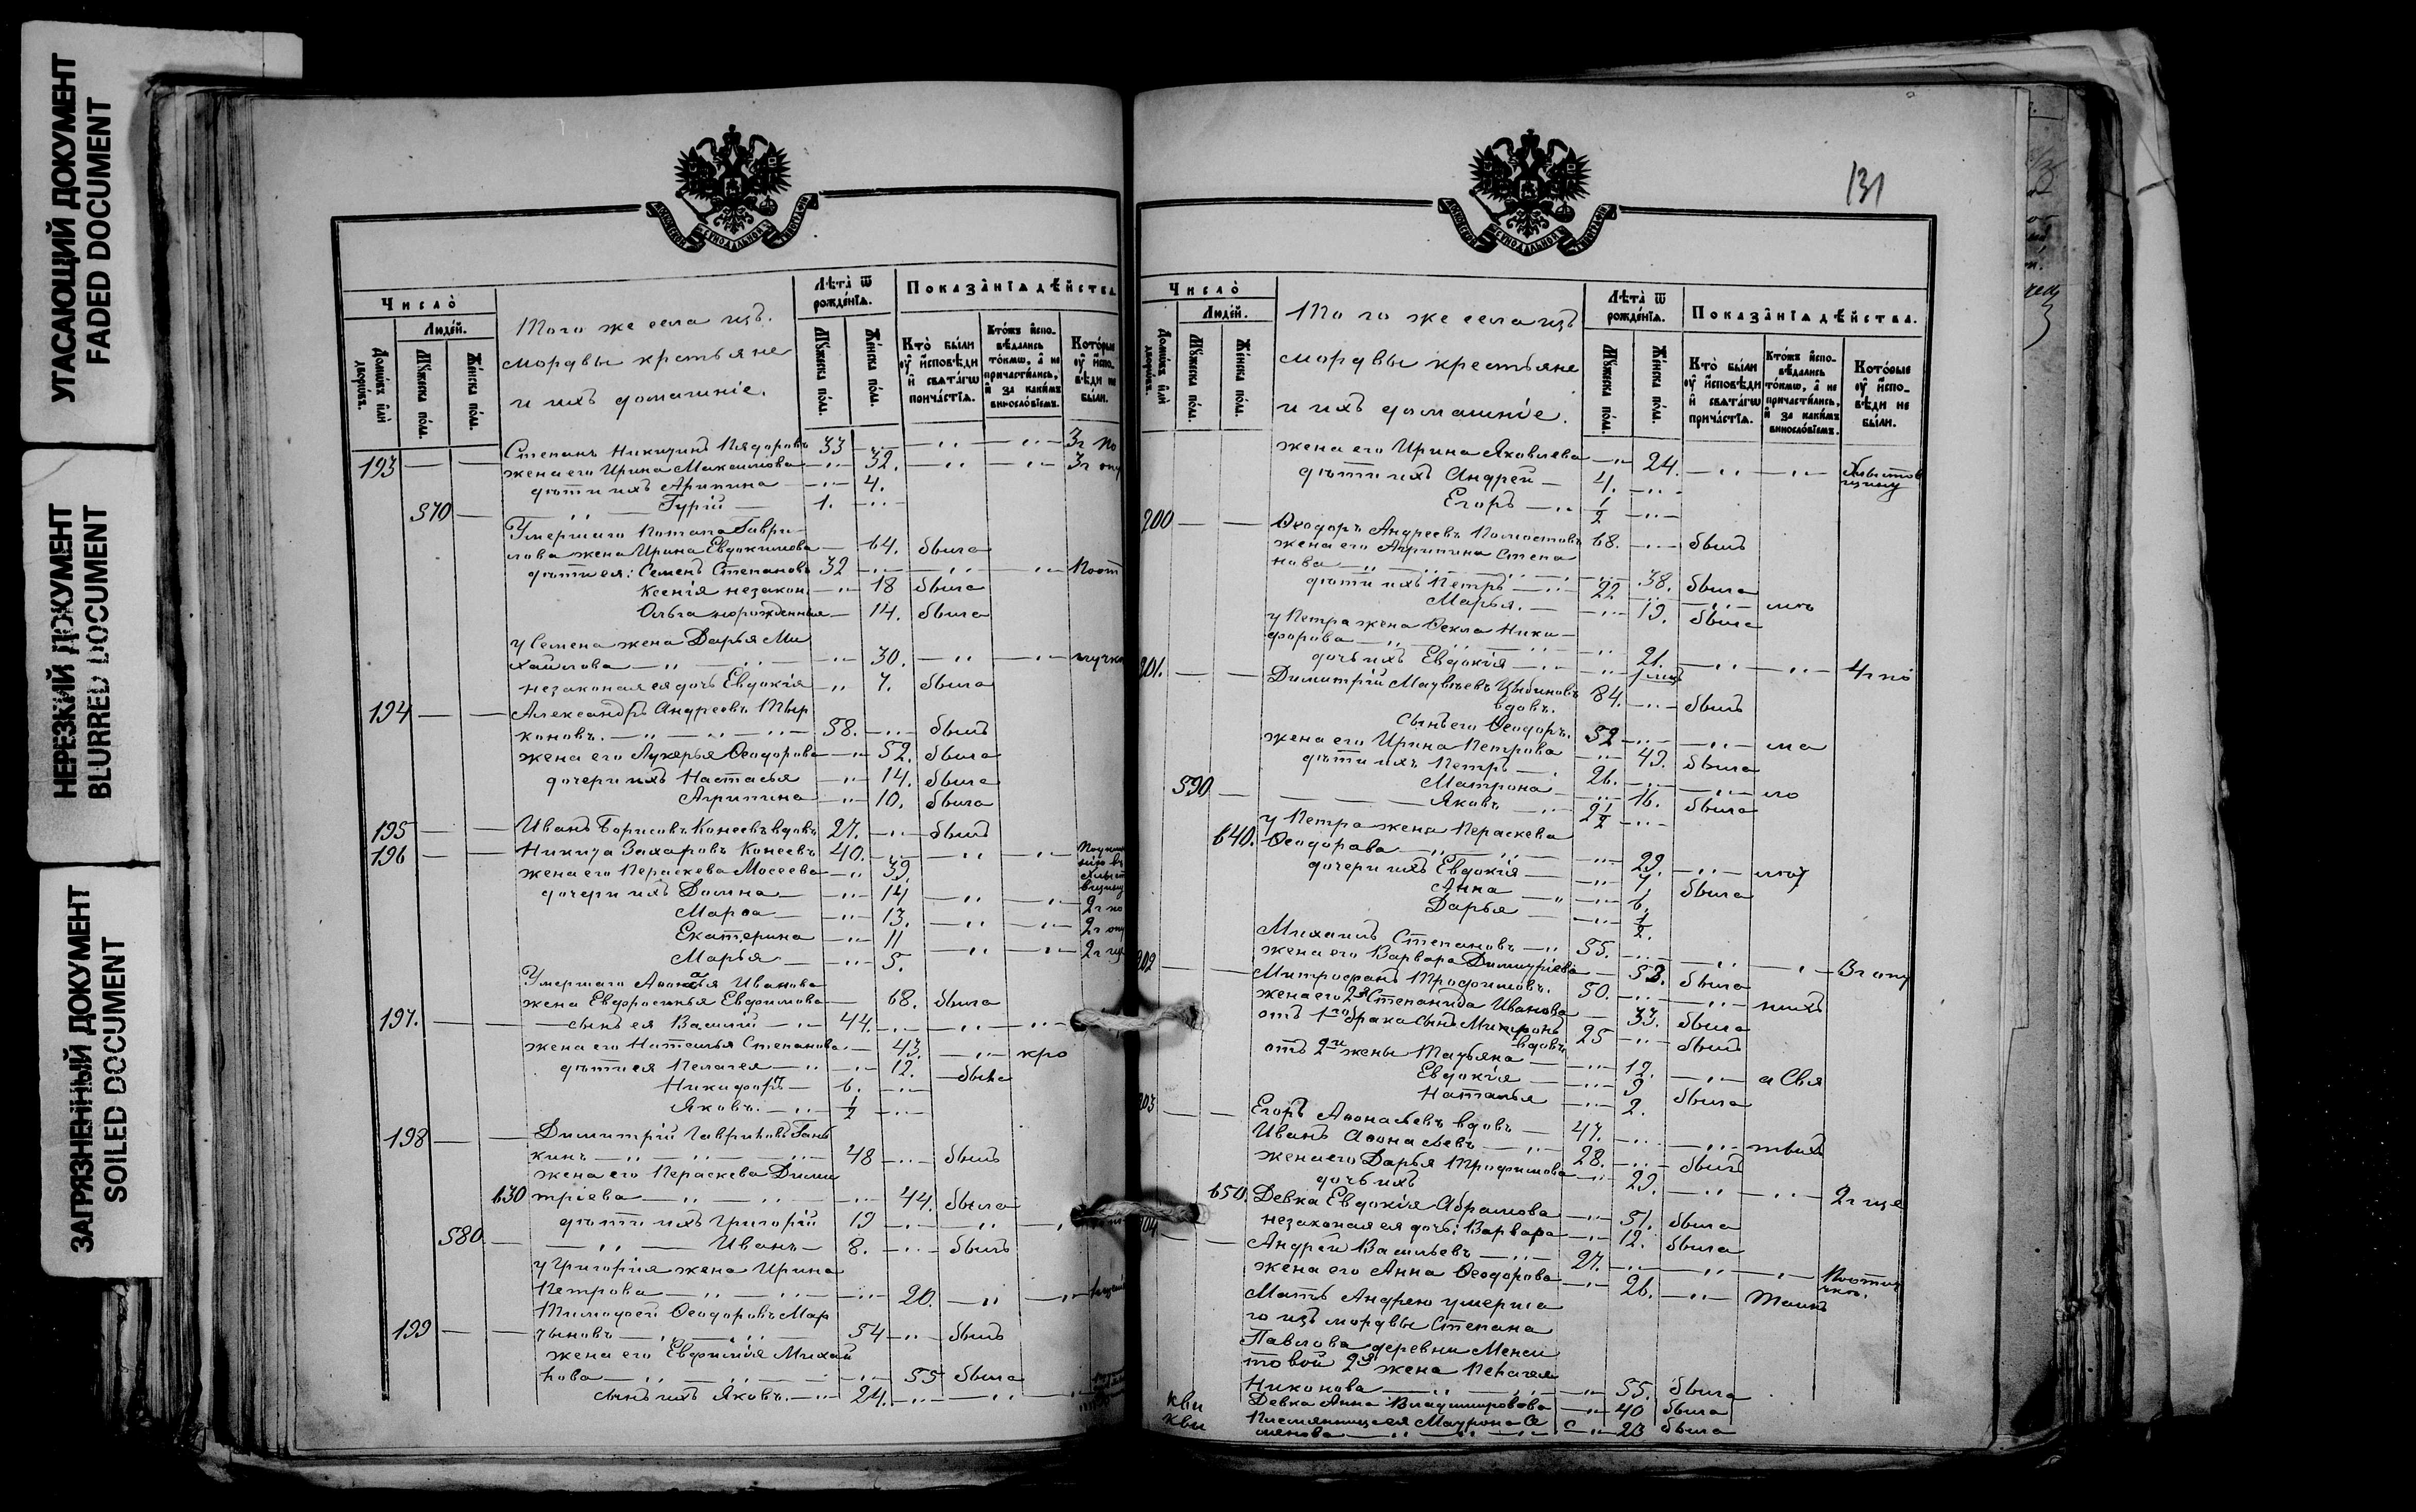 УГАСАЮЩИЙ ДОКУМЕНТ
FADED DOCUMENT
НЕРЕЗКИЙ ДОКУМЕНТ
BLURRED DOCUMENT
ЗАГРЯЗНЕННЫЙ ДОКУМЕНТ
SOILED DOCUMENT
Число̀
Людéй.
Домѡвъ или дворѡвъ.
Мꙋжеска пола.
Женска пола.
Того же села изъ
мордвы крестьяне
и ихъ домашніе.
Лѣта ѿ рождéнїѧ.
Мꙋжеска пола.
Женска пола.
Показанїѧ дѣйства
Кто были ᲂу исповѣди и свѧтагѡ причастїѧ.
Ктожъ исповѣдались токмѡ, а не причастились, и за какимъ винословїемъ.
Которые ᲂу исповѣди не были.
193 Степанъ Никитинъ 33 3 г по
жена его Ирина Максимова 32. 3 г опу
дѣти ихъ Агрипина 4.
570 Гурій 1.
Умершаго Потапа Гаври-
лова жена Ирина Евдокимова 64. была
дѣти ея: Семенъ Степановъ 32 Поот
Ксенія незакон. 18 была
Ольга норожденныя 14. была
у Семена жена Дарья Ми
хайлова 30. лучк
незаконая ея дочь Евдокія 7. была
194 Александръ Андреевъ Тыр
коновъ. 58. былъ
жена его Лукерья Ѳеодорова 52. была
дочери ихъ Настасья 14. была
Агрипина 10. была
195 Иванъ Борисовъ Конеевъ вдовъ 27. былъ
196 Никита Захаровъ Конеевъ 40.
жена его Пераскева Мосеева 39.
дочери ихъ Домна 14
Марѳа 13. 2 г по
Екатерина 11 2 г опу
Марья 5.
Умершаго Аѳонасья Иванова
жена Евфросинья Евфимова 68. была
197. сынъ ея Василій 44.
жена его Наталья Степанова 43. кро
дѣти ея Пелагея 12. была
Никифоръ 6.
Яковъ. 1/2
198 Димитрій Гавриловъ Гань
кинъ 48 былъ
жена его Пераскева Дими
630 тріева 44. была
дѣти ихъ Григорій 19
580 Иванъ 8. былъ
у Григорія жена Ирина
Петрова 20.
199 Тимофей Ѳеодоровъ Мар
тыновъ 54 былъ
жена его Евфимія Михай
лова 55 была
сынъ ихъ Яковъ. 24.
131
Число̀
Людéй.
Домѡвъ или дворѡвъ.
Мꙋжеска пола.
Женска пола.
Того же села изъ
мордвы крестьяне
и ихъ домашніе.
Лѣта ѿ рождéнїѧ.
Мꙋжеска пола.
Женска пола.
Показанїѧ дѣйства.
Кто были ᲂу исповѣди и свѧтагѡ причастїѧ.
Ктожъ исповѣдались токмѡ, а не причастились, и за какимъ винословїемъ.
Которые ᲂу исповѣди не были.
жена его Ирина Яковлева 24. Хлыстов щину
дѣти ихъ Андрей 4.
Егоръ 1/2
200 Ѳеодоръ Андреевъ 68. былъ
жена его Агрипина Степа
нова 38. была
дѣти ихъ Петръ 22
Марья. 19. была
у Петра жена Ѳекла Ники-
форова 21. 4 г по
дочь ихъ Евдокія
201. Димитрій Матвѣевъ вдовъ. 84. былъ
сынъ его Ѳеодоръ. 52 ма
жена его Ирина Петрова 49. была
дѣти ихъ Петръ 26. ло
Матрона 16. была
590 Яковъ 2 1/2
у Петра жена Пераскева
640. Ѳеодорова 29.
дочери ихъ Евдокія 7 была
Анна 6.
Дарья 1/2.
Михаилъ Степановъ 55. 3 г опу
жена его Варвара Димитріева 53. была
202 Митрофанъ Трофимовъ. 50. нихъ
жена его 2я Степанида Иванова 33. была
отъ 1го брака сынъ Миронъ вдовъ 25 былъ
отъ 2й жены Татьяна 12. а Свя
Евдокія 9 была
Наталья 2.
203 Егоръ Аѳонасьевъ вдовъ 47. тыхъ
Иванъ Аѳонасьевъ 28. былъ
жена его Дарья Трофимова 29. 2 г ще
дочь ихъ
650. Девка Евдокія Абрамова 51. была
незаконая ея дочь: Варвара 12. была
204 Андрей Васильевъ 27.
жена его Анна Ѳеодорова 26. Таинъ
Мать Андрею умерша
го изъ мордвы Степана
Павлова деревни Менси
товой 2я жена Пелагея
Никонова 55. была
Девка Анна Владимирова 40 была
Племянница ея Матрона Се
менова 23 была